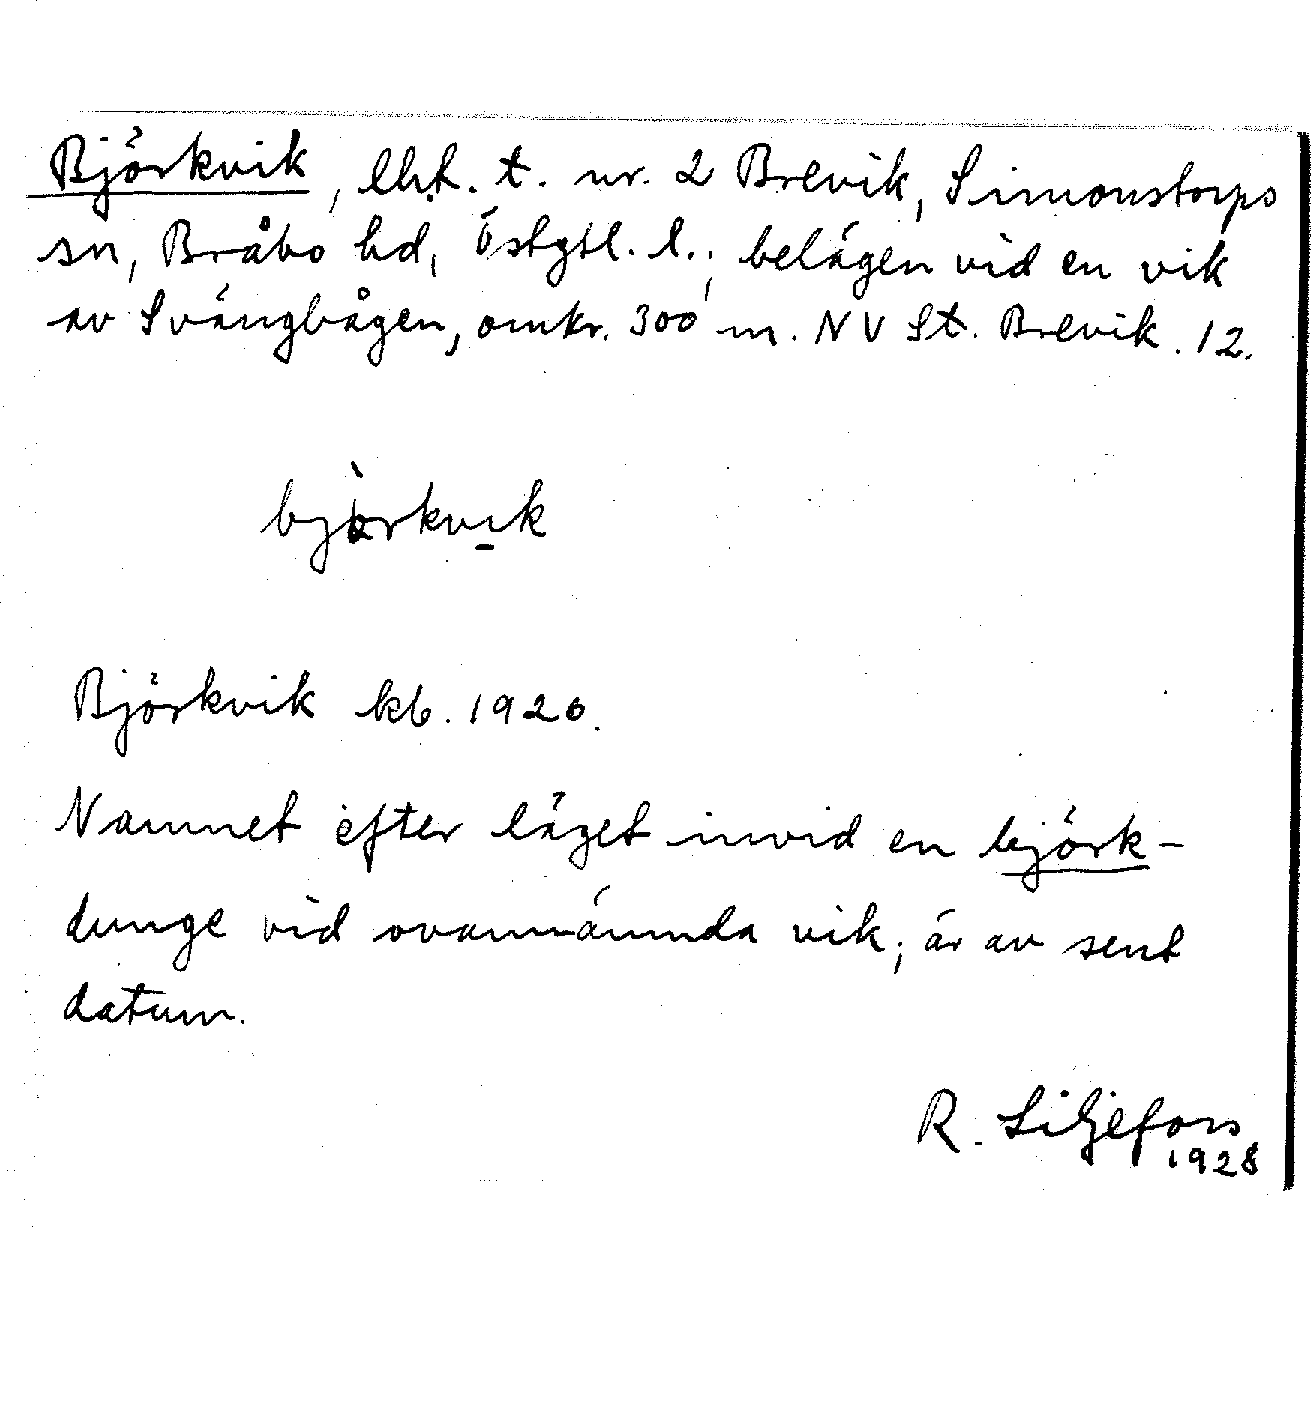 Björkvik, lht. t. nr. 2 Brevik, Simonstorps
sn, Bråbo hd, Östgtl. l.; belägen vid en vik
av Svängbågen, omkr. 300 m. NV St. Brevik. 12.
bjòrkvik
Björkvik kb. 1920.
Namnet efter läget invid en björk-
dunge vid ovannämnda vik; är av sent
datum.
R. Liljefors
1928